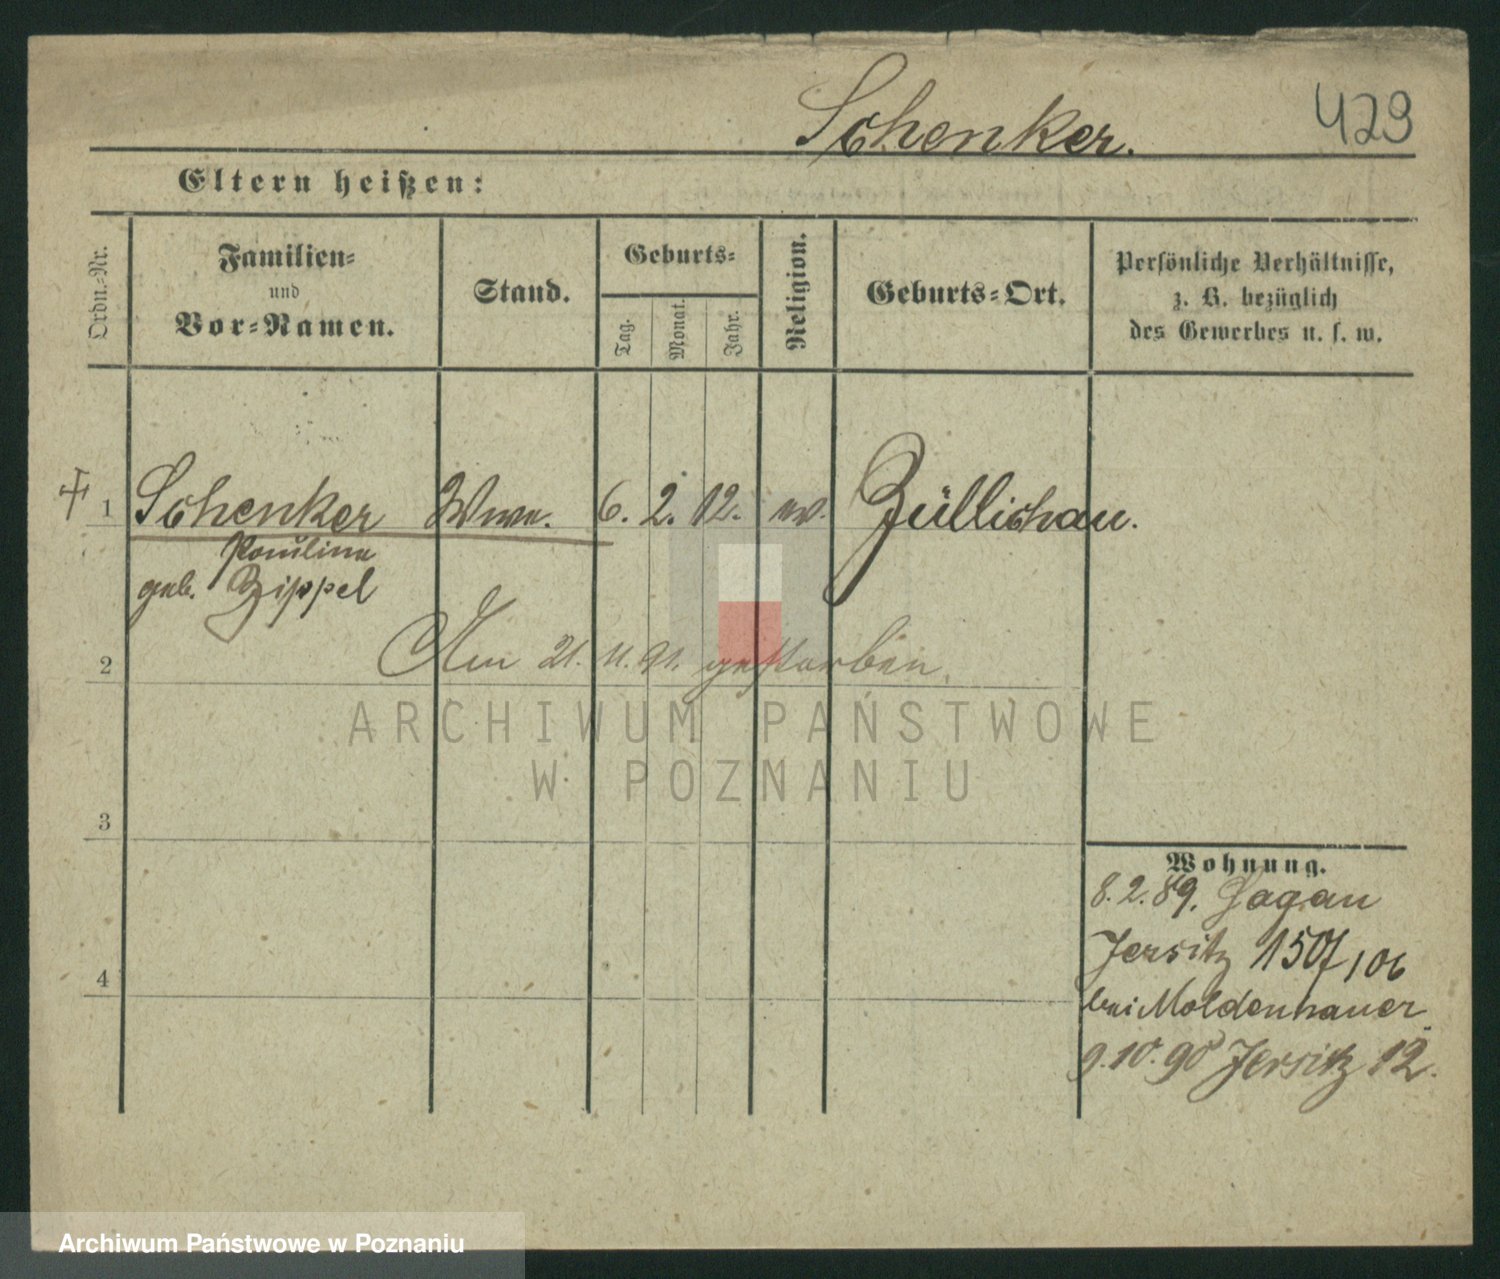 Schenker.
429
Eltern heißen:
Ordn.-Nr.
Familien-
und
Vor-Namen.
Stand.
Geburts-
Tag.
Monat.
Jahr.
Religion.
Geburts-Ort.
Persönliche Verhältnisse,
z. B. bezüglich
des Gewerbes u. s. w.
1 Schenker Wwe. 6. 2. 12. ev. Züllichau.
Pauline
geb. Zippel
Am 21. 11. 91. gestorben.
2
ARCHIWUM PAŃSTWOWE
W POZNANIU
3
Wohnung.
8. 2. 89. Sagan
Jersitz 150f/06
4
bei Moldenhauer
9. 10. 90 Jersitz 12.
Archiwum Państwowe w Poznaniu